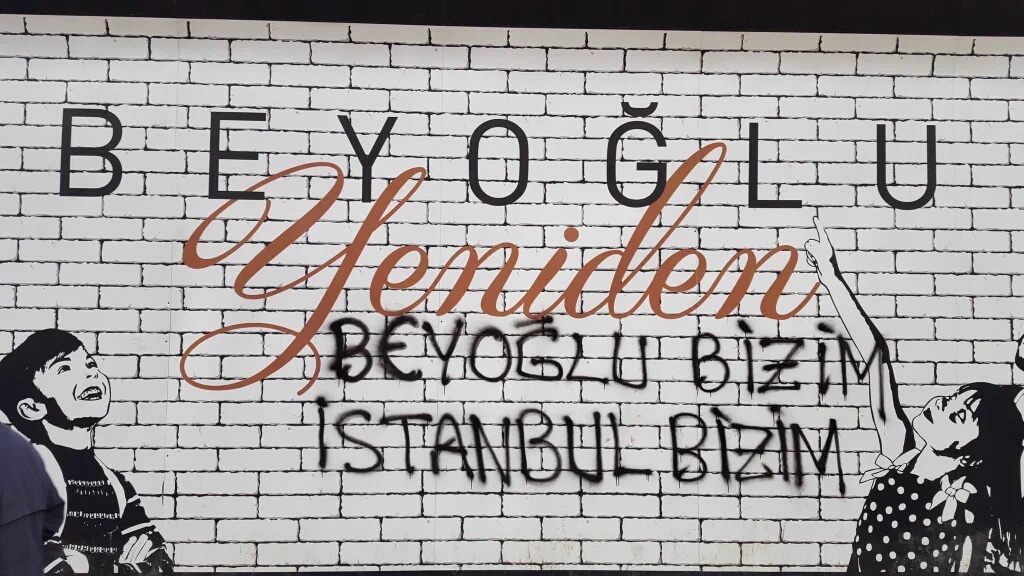 BEYOĞLU
Yeniden
BEYOĞLU BİZİM
İSTANBUL BİZİM